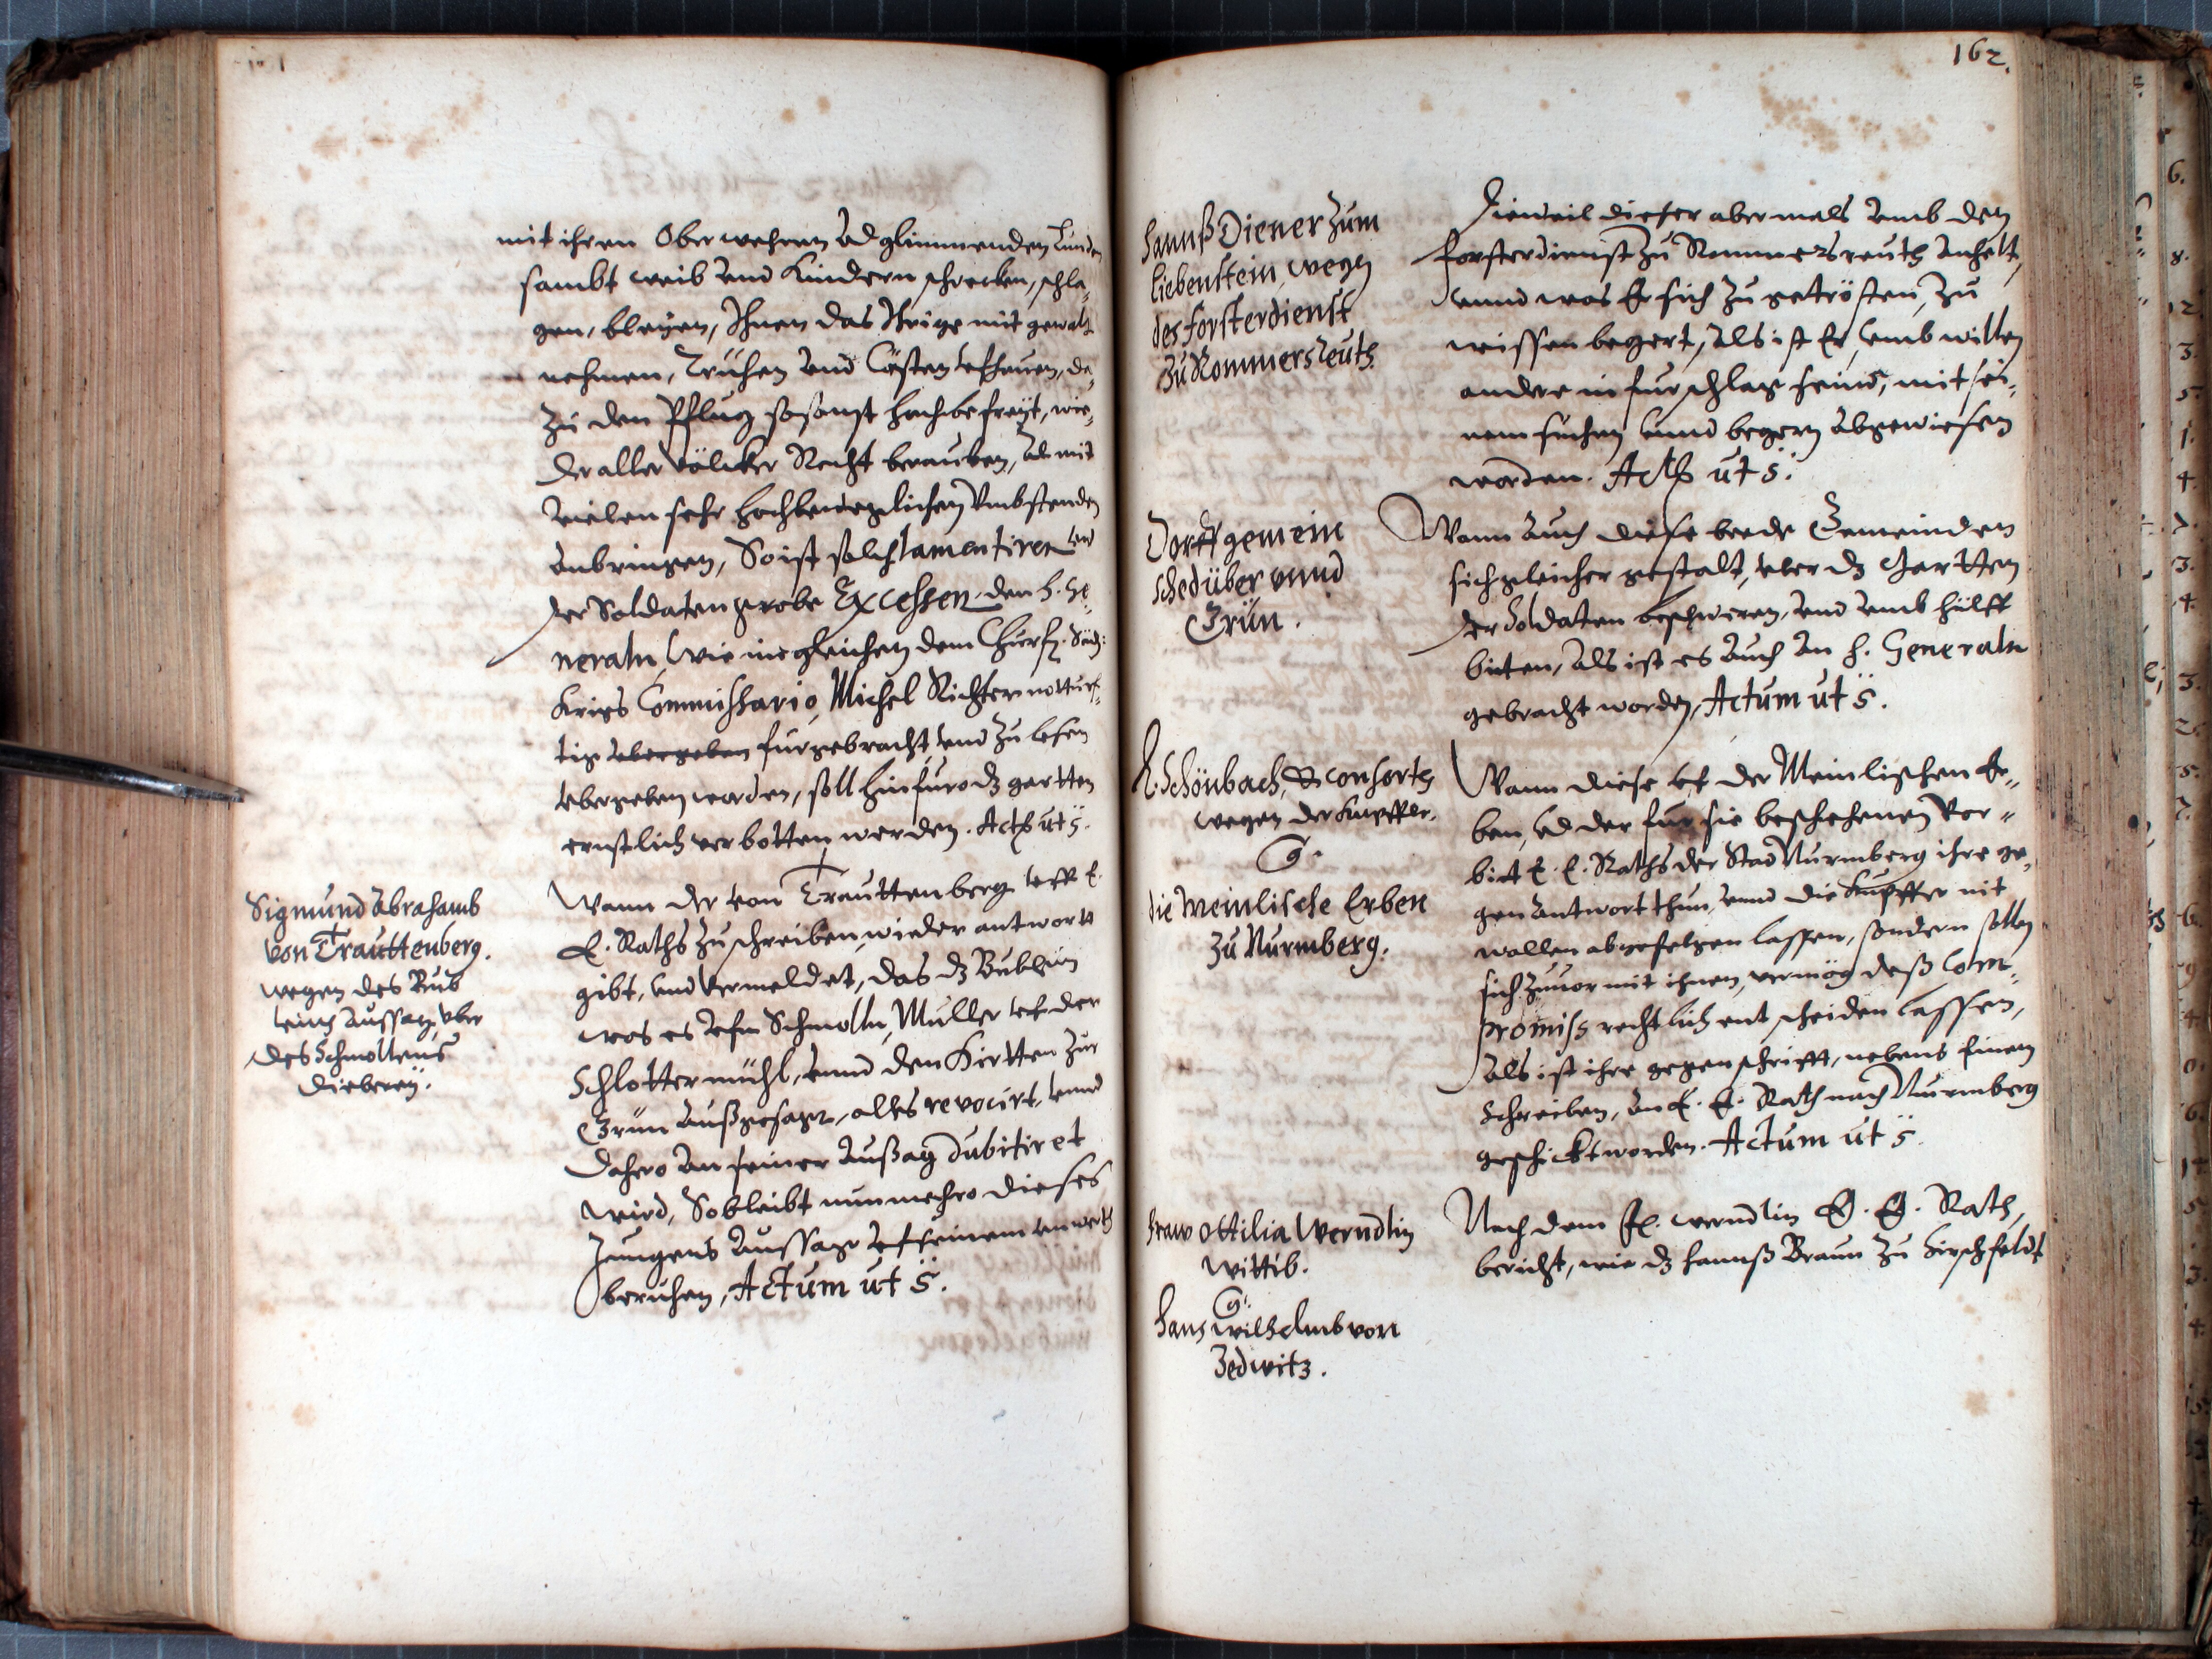 mit ihren Ober wehren vnd glimmenden Lunden
sambt weib vnd Kindern schrecken, schla¬
gen, bleyen, Ihnen das Ihrige mit gewalt
nehmen, Truhen vnd Cästen vffhauen, da¬
zu den Pflug so sonst hochbefreyt, wie¬
der aller völcker Recht berauben, vnd mit
vielen sehr hochbeweglichen Vmbstenden
anbringen, So ist solch lamentiren vnd
der Soldaten grobe Excessen den H. Ge¬
neraln, wie ingleichen dem Churf. Säch:
Kriegs Commissario, Michel Richter notturf¬
tig vbergeben furgebracht vnd zu lesen
vbergeben worden, soll hinfuro dz gartten
ernstlich verbotten werden. Actb ut s.
Sigmund Abrahamb
von Trauttenberg.
wegen des Bub
leins Aussag, vber
des Schmoltens
dieberey.
Wann der von Trauttenberg vff E.
E. Raths zuschreiben, wieder antwortt
gibt, vnd vermeldet, das dz Bublein
was es vfm Schmolln, Muller vf der
Schlottermühl, vnnd den Hirtten zur
Grün außgesagt, alles revocirt, vnnd
dahero an seiner Außag dubitiret
wird, So bleibt nunmehro dieses
Jungens Aussage vf seinem unwerth
beruhen, Actum ut s.
162.
Hannß Diener zum
liebenstein, wegen
des forsterdienst
zu Rommersreuth.
Dieweil dieser abermals vmb den
forsterdienst zu Rommersreuth anhelt,
vnnd was Er sich zu getrösten, zu
wissen begert, Als ist Er, vmb willen
andere in furschlag seind, mit sei¬
nem suchen vnnd begern abgewiesen
worden. Actb ut s.
Dorffgemein
sched über vnnd
Grün.
Wann auch diese beede Gemeinden
sich gleicher gestalt, vber dz Gartten
der Soldaten beschweren, vnd vmb hülff
bitten, Als ist es auch an H. Generaln
gebracht worden, Actum ut s.
H. Schönbach, & consorts
wegen der Kupffer.
C.
die Meinlische Erben
zu Nurmberg.
Wann diese vf der Meinlischen Er¬
ben, vnd der fur sie beschehenen Vor¬
bitt E. E. Raths der Stad Nurmberg ihre ge¬
gen Antwort thun, vnnd die Kupffer nit
wollen abgefolgen lassen, sondern sollen
sich zuuor mit ihnen, vermög deß Com¬
promiss rechtlich entscheiden lassen,
Als ist ihre gegenschrifft, nebens einem
Schreiben, an E. E. Rath nach Nurmberg
geschickt worden. Actum ut s.
Fraw Ottilia Werndlin
wittib.
C.
Hans Wilhelmb von
Zedwitz.
Nach dem Fr. Werndlin E. E. Rath,
bericht, wie dz Hannß Braun zu Hirschfeldt